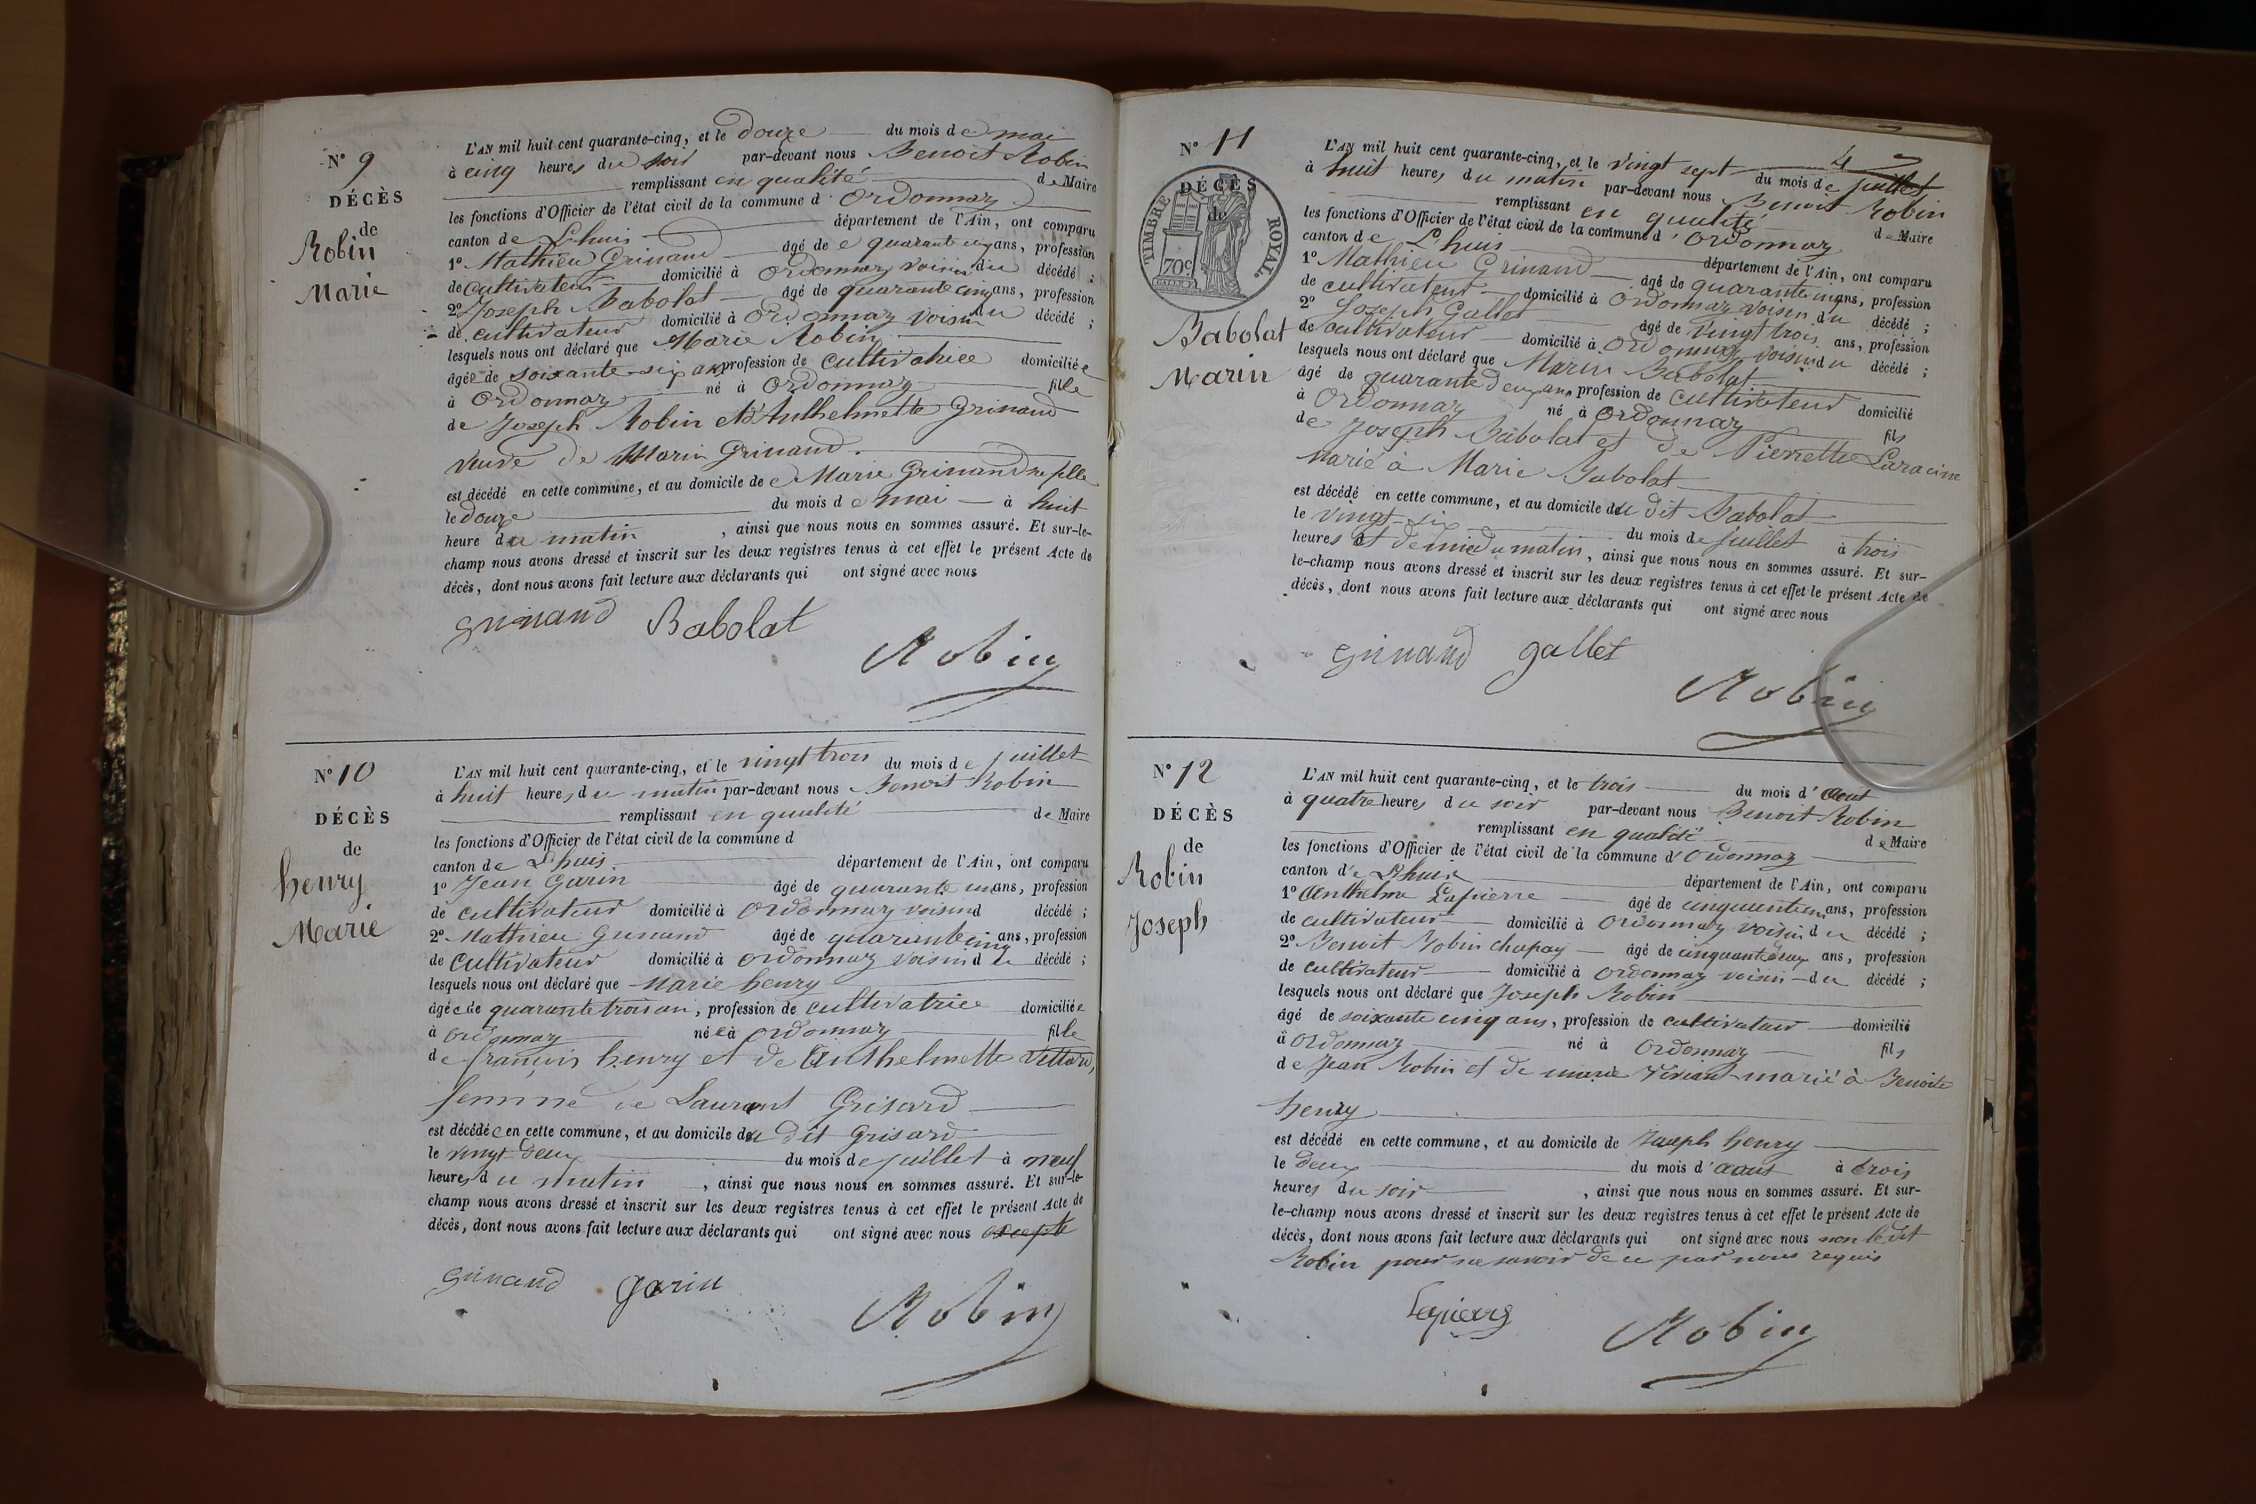 N° 9
DÉCÈS
de
Robin
Marie
L'AN mil huit cent quarante-cinq, et le douze du mois de mai
à cinq heures du soir par-devant nous Benoit Robin
remplissant en qualité de Maire
les fonctions d'Officier de l'état civil de la commune d'Ordonnaz
canton de Lhuis département de l'Ain, ont comparu
1° Mathieu Grinand âgé de quarante cinq ans, profession
de cultivateur domicilié à Ordonnaz voisin du décédé ;
2° Joseph Babolat âgé de quarante cinq ans, profession
de cultivateur domicilié à Ordonnaz voisin du décédé ;
lesquels nous ont déclaré que Marie Robin
âgée de soixante-six ans profession de cultivatrice domiciliée
à Ordonnaz né à Ordonnaz fille
de Joseph Robin et d'Anthelmette Grinand
veuve de Marin Grinand.
est décédé en cette commune, et au domicile de Marie Grinand sa fille
le douze du mois de mai à huit
heure du matin, ainsi que nous nous en sommes assuré. Et sur-le-
champ nous avons dressé et inscrit sur les deux registres tenus à cet effet le présent Acte de
décès, dont nous avons fait lecture aux déclarants qui ont signé avec nous
Grinand Babolat
Robin
N° 10
DÉCÈS
de
henry
Marie
L'AN mil huit cent quarante-cinq, et le vingt trois du mois de juillet
à huit heures du matin par-devant nous Benoit Robin
remplissant en qualité de Maire
les fonctions d'Officier de l'état civil de la commune d
canton de Lhuis département de l'Ain, ont comparu
1° Jean Garin âgé de quarante un ans, profession
de cultivateur domicilié à Ordonnaz voisin d décédé ;
2° Mathieu Grinand âgé de quarante cinq ans, profession
de cultivateur domicilié à Ordonnaz voisin du décédé ;
lesquels nous ont déclaré que Marie henry
âgée de quarante trois an, profession de cultivatrice domiciliée
à Ordonnaz née à Ordonnaz fille
de françois henry et de Anthelmette
femme de Laurent Grisard
est décédée en cette commune, et au domicile du dit Grisard
le vingt-deux du mois de juillet à neuf
heures du matin, ainsi que nous nous en sommes assuré. Et sur-le-
champ nous avons dressé et inscrit sur les deux registres tenus à cet effet le présent Acte de
décès, dont nous avons fait lecture aux déclarants qui ont signé avec nous excepté
Grinand Garin
Robin
N° 11
DÉCÈS
de
TIMBRE ROYAL
70c
Babolat
Marin
4
L'AN mil huit cent quarante-cinq, et le vingt sept du mois de juillet
à huit heures du matin par-devant nous Benoit Robin
remplissant en qualité de Maire
les fonctions d'Officier de l'état civil de la commune d'Ordonnaz
canton de L'huis département de l'Ain, ont comparu
1° Mathieu Grinand âgé de quarante cinq ans, profession
de cultivateur domicilié à Ordonnaz voisin du décédé ;
2° Joseph Gallet âgé de vingt trois ans, profession
de cultivateur domicilié à Ordonnaz voisin du décédé ;
lesquels nous ont déclaré que Marin Babolat
âgé de quarante deux ans profession de cultivateur domicilié
à Ordonnaz né à Ordonnaz fils
de Joseph Babolat et de Pierrette Laracine
marié à Marie Babolat
est décédé en cette commune, et au domicile du dit Babolat
le vingt-six du mois de juillet à trois
heures et demie du matin, ainsi que nous nous en sommes assuré. Et sur-
le-champ nous avons dressé et inscrit sur les deux registres tenus à cet effet le présent Acte de
décès, dont nous avons fait lecture aux déclarants qui ont signé avec nous
Grinand gallet
Robin
N° 12
DÉCÈS
de
Robin
Joseph
L'AN mil huit cent quarante-cinq, et le trois du mois d'Aout
à quatre heures du soir par-devant nous Benoit Robin
remplissant en qualité de Maire
les fonctions d'Officier de l'état civil de la commune d'Ordonnaz
canton de Lhuis département de l'Ain, ont comparu
1° Anthelme Lapierre âgé de cinquante cinq ans, profession
de cultivateur domicilié à Ordonnaz voisin du décédé ;
2° Benoit Robin chapay âgé de cinquante deux ans, profession
de cultivateur domicilié à Ordonnaz voisin du décédé ;
lesquels nous ont déclaré que Joseph Robin
âgé de soixante cinq ans, profession de cultivateur domicilié
à Ordonnaz né à Ordonnaz fils
de Jean Robin et de marie marié à Benoite
henry
est décédé en cette commune, et au domicile de Joseph henry
le deux du mois d'aout à trois
heures du soir, ainsi que nous nous en sommes assuré. Et sur-
le-champ nous avons dressé et inscrit sur les deux registres tenus à cet effet le présent Acte de
décès, dont nous avons fait lecture aux déclarants qui ont signé avec nous non ledit
Robin pour ne savoir de ce par nous requis
Lapierre
Robin